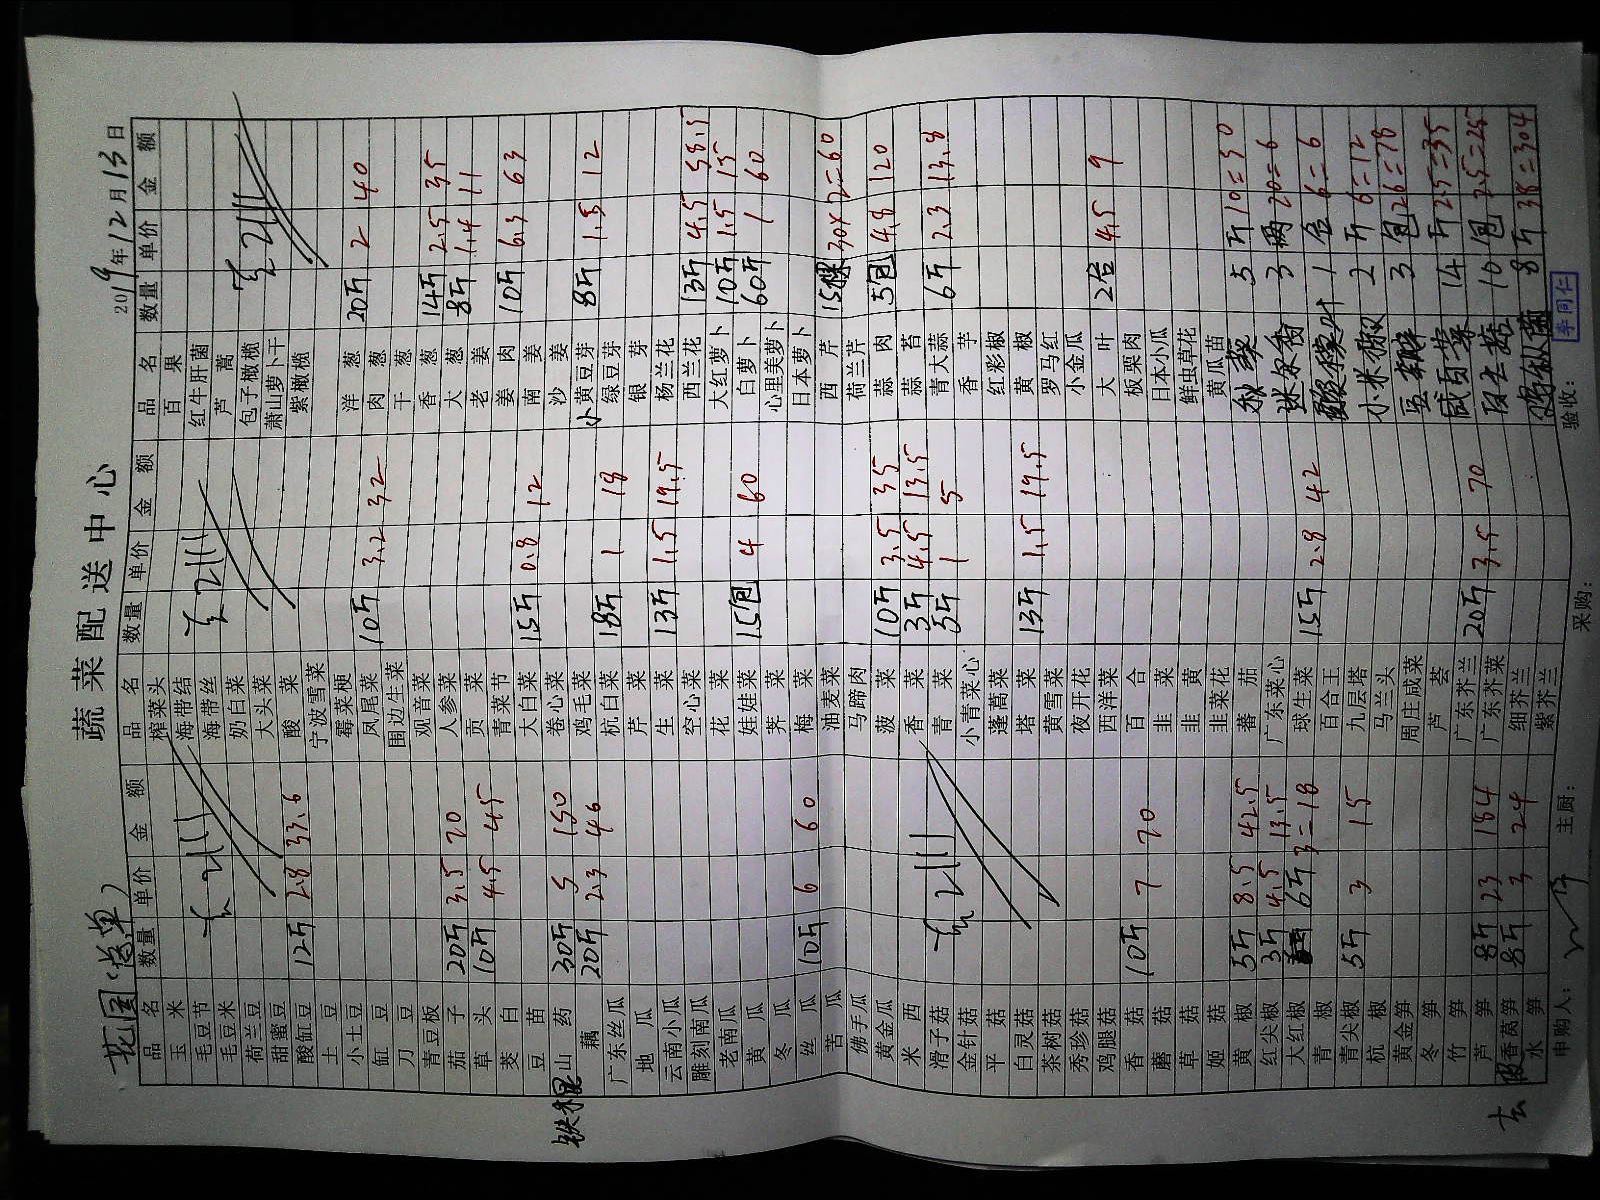 蔬菜配送中心
花园(送单)
2019年12月13日
品名 数量 单价 金额 品名 数量 单价 金额 品名 数量 单价 金额
玉米 榨菜头 百果
毛豆节 海带结 红牛肝菌
毛豆米 海带丝 芦蒿
荷兰豆 奶白菜 包子橄榄
甜蜜豆 大头菜 萧山萝卜干
酸缸豆 12斤 2.8 33.6 酸菜 紫橄榄
土豆 宁波雪菜
小土豆 霉菜梗 洋葱 20斤 2 40
缸豆 凤尾菜 10斤 3.2 32 肉葱
刀豆 围边生菜 干葱
青豆板 观音菜 香葱 14斤 2.5 35
茄子 20斤 3.5 70 人参菜 大葱 8斤 1.4 11
草头 10斤 4.5 45 贡菜 老姜
茭白 青菜节 姜肉 10斤 6.3 63
豆苗 大白菜 15斤 0.8 12 南姜
铁棍山药 30斤 5 150 卷心菜 沙姜
藕 20斤 2.3 46 鸡毛菜 小黄豆芽 8斤 1.5 12
广东丝瓜 杭白菜 18斤 1 18 绿豆芽
地瓜 芹菜 银芽
云南小瓜 生菜 13斤 1.5 19.5 杨兰花
雕刻南瓜 空心菜 西兰花 13斤 4.5 58.5
老南瓜 花菜 大红萝卜 10斤 1.5 15
黄瓜 娃娃菜 15包 4 60 白萝卜 60斤 1 60
冬瓜 荠菜 心里美萝卜
丝瓜 10斤 6 60 梅菜 日本萝卜
苦瓜 油麦菜 西芹 15棵 30×2=60
佛手瓜 马蹄肉 荷兰芹
黄金瓜 菠菜 10斤 3.5 35 蒜肉 5包 4.8 120
米西 香菜 3斤 4.5 13.5 蒜苔
滑子菇 青菜 5斤 1 5 青大蒜 6斤 2.3 13.8
金针菇 小青菜心 香芋
平菇 蓬蒿菜 红彩椒
白灵菇 塔菜 13斤 1.5 19.5 黄椒
茶树菇 黄雪菜 罗马红
秀珍菇 夜开花 小金瓜
鸡腿菇 西洋菜 大叶 2 4.5 9
香菇 10斤 7 70 百合 板栗肉
蘑菇 韭菜 日本小瓜
草菇 韭黄 鲜虫草花
姬菇 韭菜花 黄瓜苗
黄椒 5斤 8.5 42.5 蕃茄 秋葵 5斤 10=50
红尖椒 3斤 4.5 13.5 广东菜心 3两 20=6
大红椒 6斤 3=18 球生菜 15斤 2.8 42 1 6=6
青椒 百合王 小米椒 2斤 6=12
青尖椒 5斤 3 15 九层塔 3包 26=78
杭椒 马兰头 14斤 2.5=35
黄金笋 周庄咸菜 10包 2.5=25
冬笋 芦荟 8斤 38=304
竹笋 广东芥兰
芦笋 8斤 23 184 广东芥菜 20斤 3.5 70
去皮香莴笋 8斤 3 24 细芥兰
水笋 紫芥兰
申购人: 主厨: 采购: 验收: 李同仁